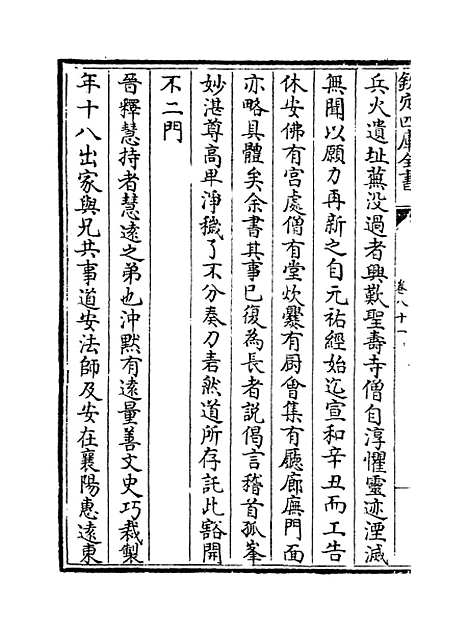 欽定四庫全書
卷八十一
兵火遺址蕪没過者興歎聖壽寺僧自淳懼靈迹湮滅
無聞以願力再新之自元祐經始迄宣和辛丑而工告
休安佛有宫處僧有堂炊爨有厨會集有廳廊廡門面
亦略具體矣余書其事已復為長者説偈言稽首孤峯
妙湛尊高卑淨穢了不分奏刀砉然道所存託此豁開
不二門
晉釋慧持者慧遠之弟也沖默有遠量善文史巧裁製
年十八出家與兄共事道安法師及安在襄陽惠遠東